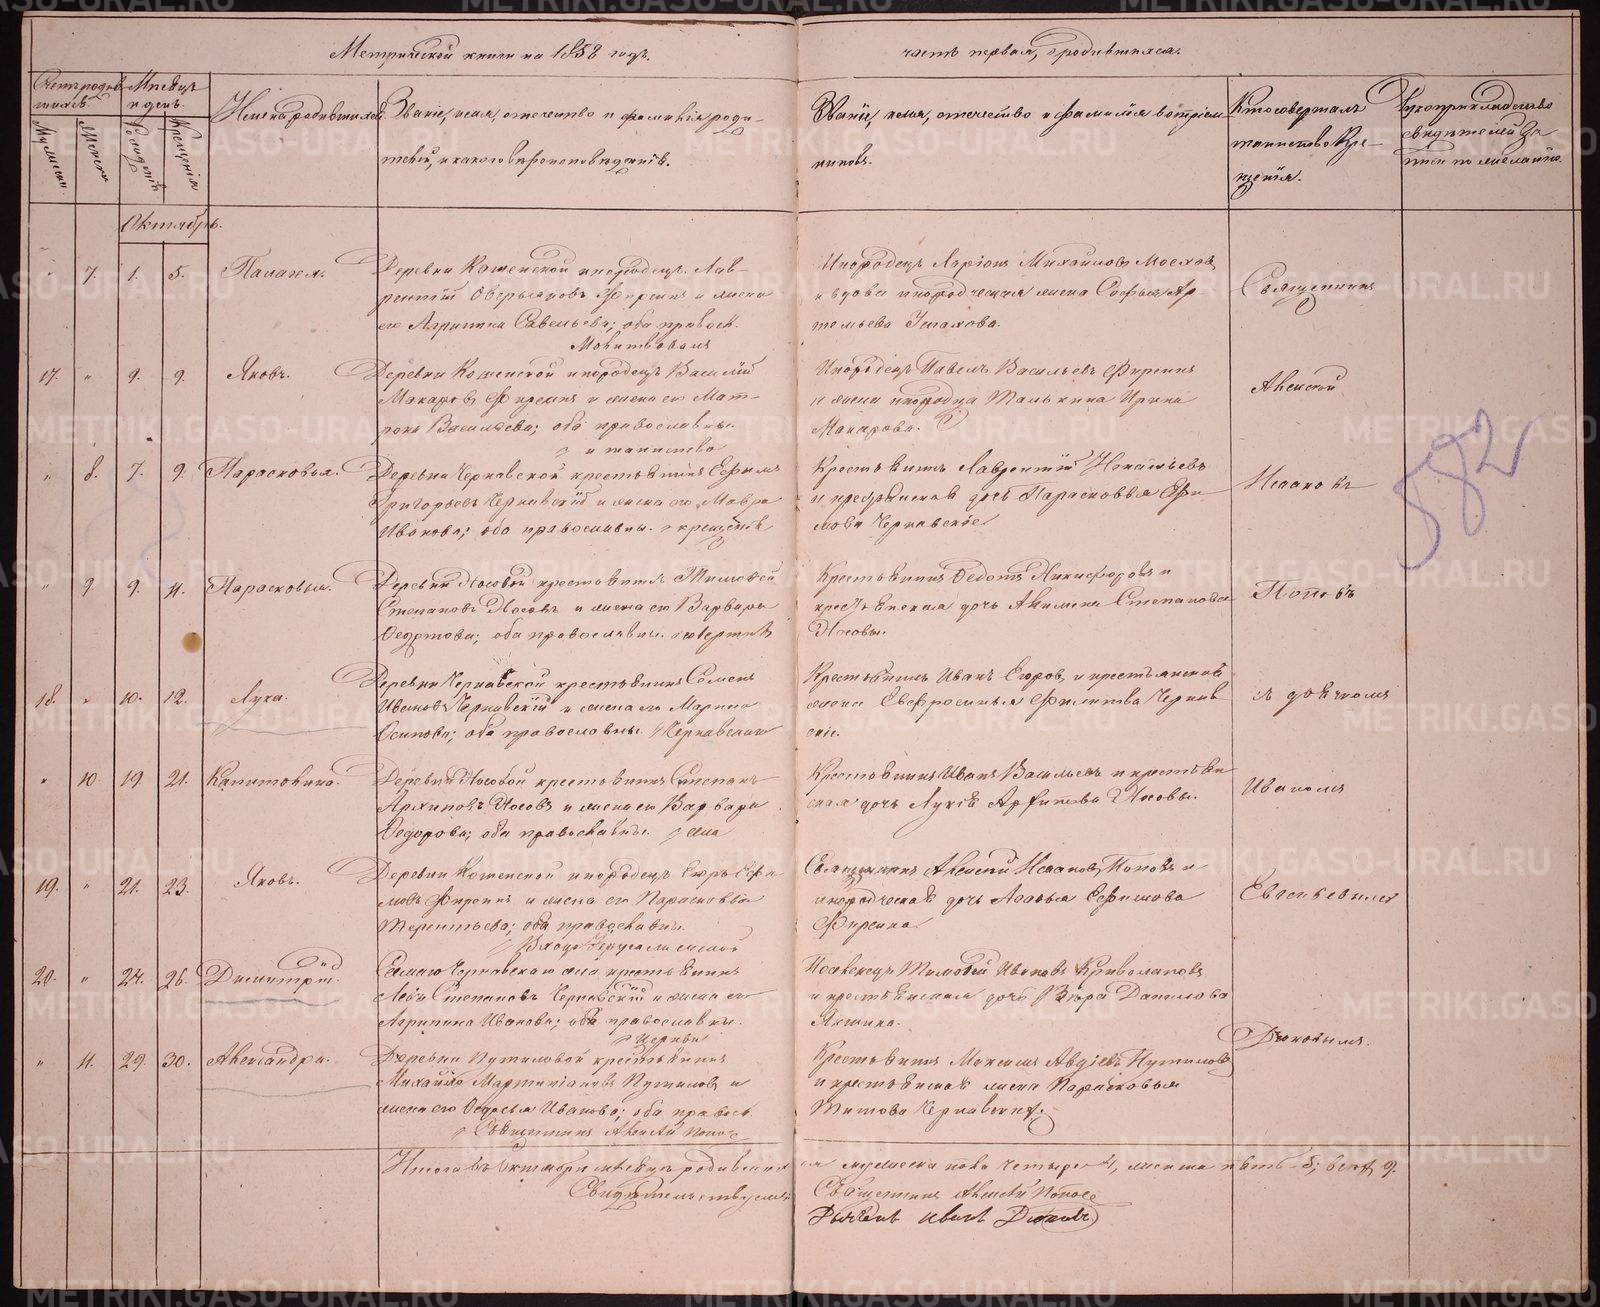 Метрической книги на 1858 годъ.
часть первая, о родившихся.
Счетъ родив
шихся
Мѣсяцъ
и день.
Мужеска.
Женска
Рожденія
Крещенія
Имена родившихся.
Званіе, имя, отчество и фамилія роди-
телей, и какого вѣроисповѣданія.
Званіе, имя, отчество и фамилія воспріем
никовъ.
Кто совершалъ
таинство Кре-
щенія.
Рукоприкладство
свидѣтелей за
писи по желанію.
Октябрь.
7. 1. 5. Палагея.
Деревни Кошенской инородецъ Лав-
рентій Оверьяновъ Фирсинъ и жена
его Агрипина Савельева; оба правосл.
Инородецъ Ларіонъ Михайловъ
и вдова инородческая жена Софья Ар-
темьева
Священникъ
Молитвовалъ
17. " 9. 9. Яковъ.
Деревни Кошенской инородецъ Василій
Макаровъ Фирсинъ и жена его Мат-
рона Васильева; оба православны.
Инородецъ Павелъ Васильевъ Фирсинъ
и жена инородца Ирина
Макарова.
Алексѣй
и таинство
" 8. 7. 9. Парасковья.
Деревни Чернавской крестьянинъ Ефимъ
Григорьевъ Чернавскій и жена его Мавра
Иванова; оба православны. крещенія
Крестьянинъ Лаврентій Игнатьевъ
и крестьянская дочь Парасковья Ефи
мова Чернавскіе
Исааковъ
" 9. 9. 11. Парасковья.
Деревни Носовой крестьянинъ Тимофей
Степановъ Носовъ и жена его Варвара
Федотова; оба православны. совершилъ
Крестьянинъ Федотъ Никифоровъ и
крестьянская дочь Акилина Степанова
Носовы.
Поповъ
18. " 10. 12. Лука.
Деревни Чернавской крестьянинъ Семенъ
Ивановъ Чернавскій и жена его Марина
Осипова; оба православны. Чернавскаго
Крестьянинъ Иванъ Егоровъ, и крестьянская
жена Евфросинья Филипова Чернав
скіе.
съ дьячкомъ
" 10. 19. 21. Капитолина.
Деревни Носовой крестьянинъ Степанъ
Архиповъ Носовъ и жена его Варвара
Федорова; оба православны. села
Крестьянинъ Иванъ Васильевъ и крестьян
ская дочь Архипова Носовы.
Иваномъ
19. " 21. 23. Яковъ.
Деревни Кошенской инородецъ Егоръ Ефи
мовъ Фирсинъ и жена его Парасковья
Терентьева; оба православны.
Священникъ Алексѣй Исааковъ Поповъ и
инородческая дочь Ефимова
Фирсина.
Евгеньевымъ
Входо Іерусалимской
20. " 24. 26. Димитрій.
Самаго Чернавскаго села крестьянинъ
Степановъ Чернавскій и жена его
Агрипина Иванова; оба православны.
Тимофей Ивановъ Криволаповъ
и крестьянская дочь Вѣра Данилова
Якшина.
Дюковымъ.
Церкви
" 11. 29. 30. Александра.
Деревни Путиловой крестьянинъ
Михайло Мартиніановъ Путиловъ и
жена его Федосья Иванова; оба правосл.
Крестьянинъ Максимъ Авдіевъ Путиловъ
и крестьянская жена Парасковья
Титова Чернавскія.
Священникъ Алексѣй Поповъ
Итого въ Октябрѣ мѣсяцѣ родившихся мужеска пола четыре 4, женска пять 5; всего 9.
Свидѣтельствуемъ:
Священникъ Алексѣй Поповъ
Дьячекъ Иванъ Дюковъ
582
METRIKI.GASO-URAL.RU